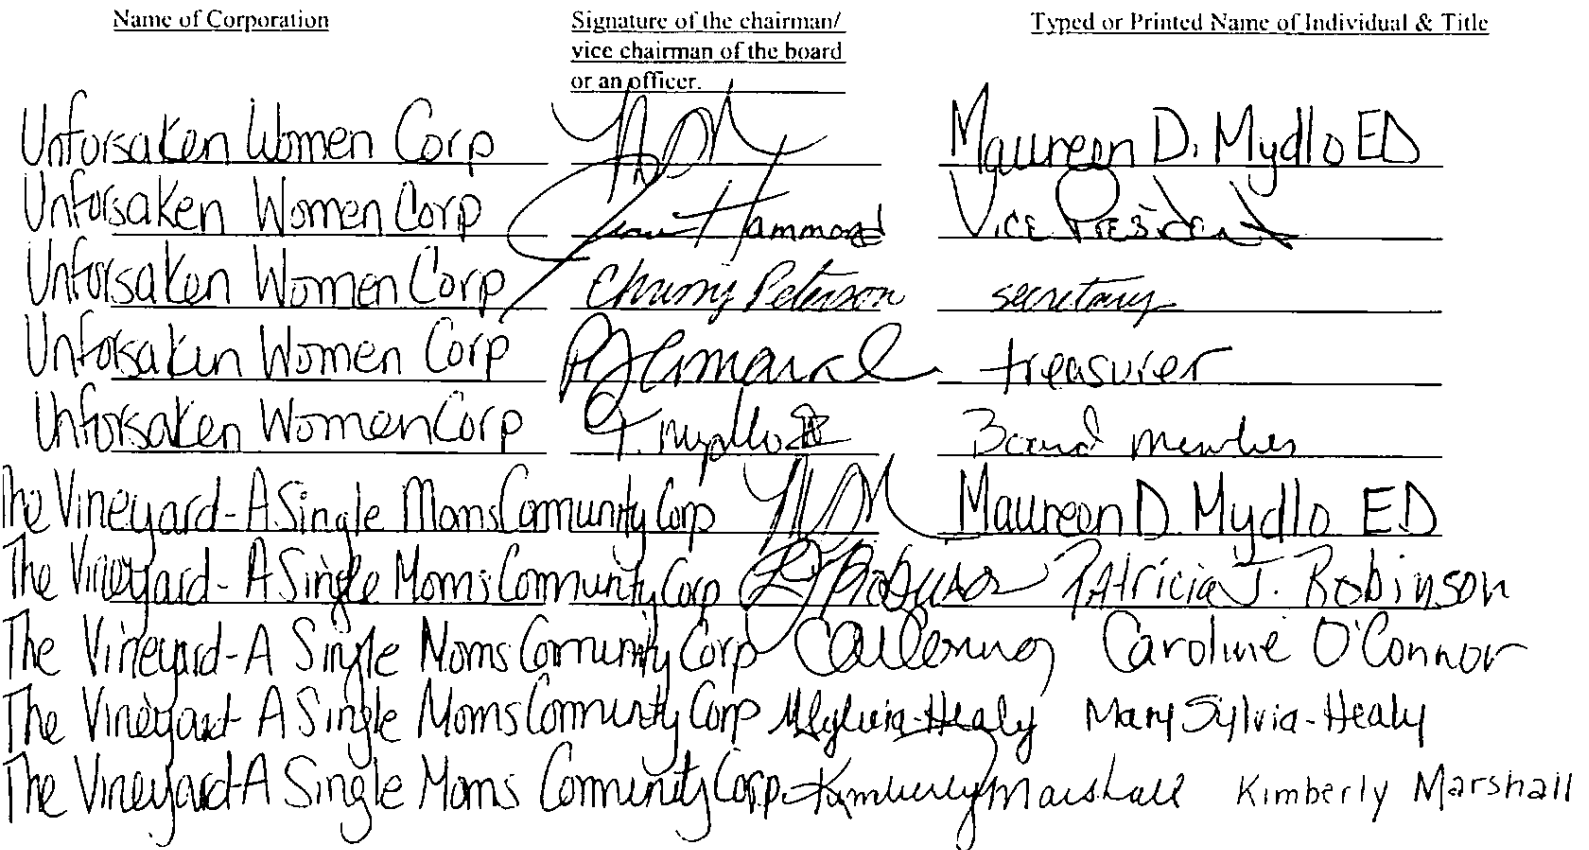 Name of Corporation Signature of the chairman/ Typed or Printed Name of Individual & Title
vice chairman of the board
or an officer.
Unforsaken Women Corp Maureen D. Mydlo ED
Unforsaken Women Corp Hammond Vice President
Unforsaken Women Corp Peterson secretary
Unforsaken Women Corp treasurer
Unforsaken Women Corp T. Mydlo Board member
The Vineyard-A Single Moms Community Corp Maureen D. Mydlo ED
The Vineyard-A Single Moms Community Corp Patricia J. Robinson
The Vineyard-A Single Moms Community Corp Caroline O'Connor
The Vineyard-A Single Moms Community Corp MSylvia-Healy Mary Sylvia-Healy
The Vineyard-A Single Moms Community Corp Kimberly Marshall Kimberly Marshall